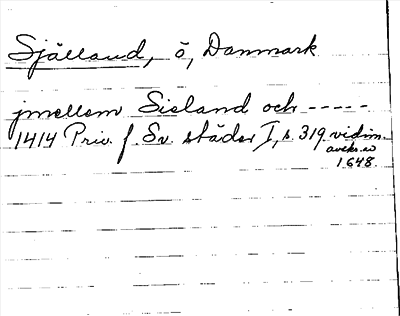 Själland, ö, Danmark
jmellom Sieland och -----
1414 Priv. f. Sv. städer I, s. 319 vidim.
avskr. av
1648